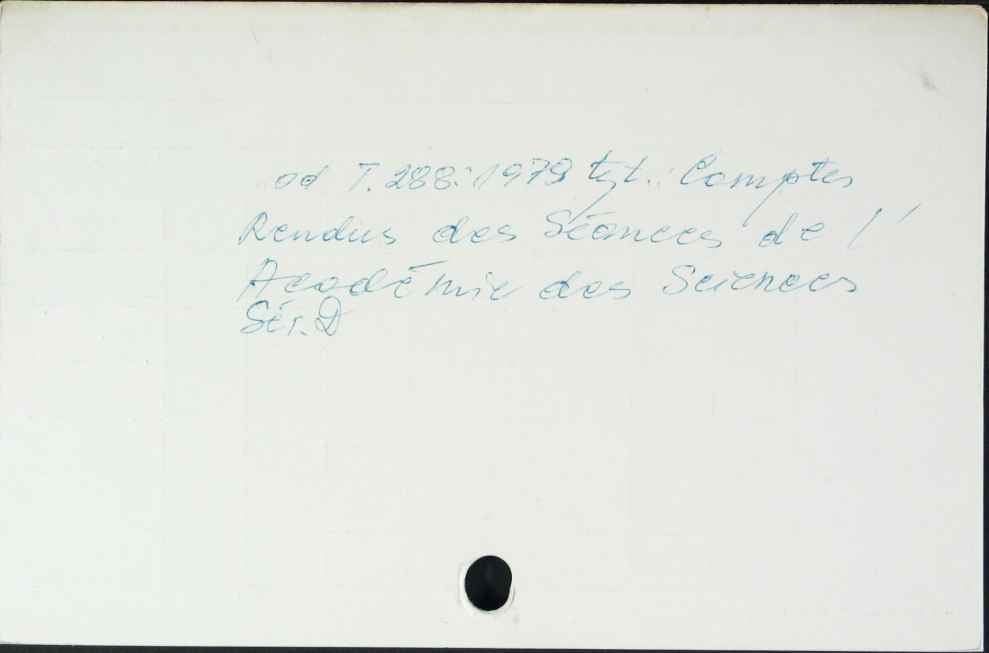 od T. 288: 1979 tyt.: Comptes
Rendus des Séances de l'
Académie des Sciences
Sér. D